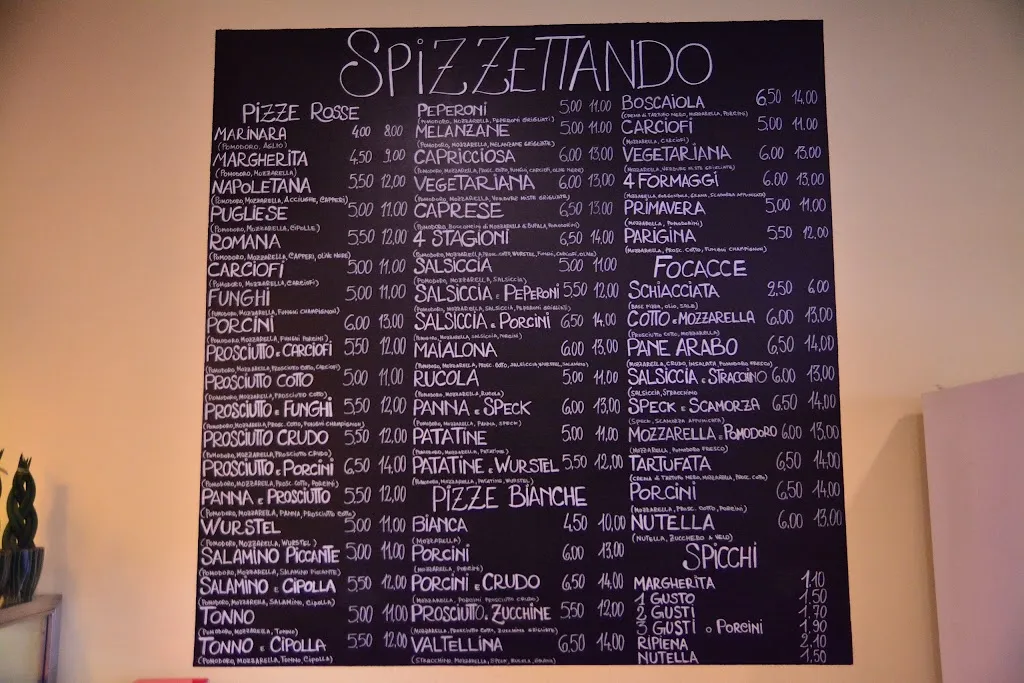 SPIZZETTANDO
PIZZE ROSSE
MARINARA 4,00 8,00
(POMODORO, AGLIO)
MARGHERITA 4,50 9,00
(POMODORO, MOZZARELLA)
NAPOLETANA 5,50 12,00
(POMODORO, MOZZARELLA, ACCIUGHE, CAPPERI)
PUGLIESE 5,00 11,00
(POMODORO, MOZZARELLA, CIPOLLE)
ROMANA 5,50 12,00
(POMODORO, MOZZARELLA, CAPPERI, OLIVE NERE)
CARCIOFI 5,00 11,00
(POMODORO, MOZZARELLA, CARCIOFI)
FUNGHI 5,00 11,00
(POMODORO, MOZZARELLA, FUNGHI CHAMPIGNON)
PORCINI 6,00 13,00
(POMODORO, MOZZARELLA, FUNGHI PORCINI)
PROSCIUTTO E CARCIOFI 5,50 12,00
(POMODORO, MOZZARELLA, PROSCIUTTO COTTO, CARCIOFI)
PROSCIUTTO COTTO 5,00 11,00
(POMODORO, MOZZARELLA, PROSCIUTTO COTTO)
PROSCIUTTO E FUNGHI 5,50 12,00
(POMODORO, MOZZARELLA, PROSC. COTTO, FUNGHI CHAMPIGNON)
PROSCIUTTO CRUDO 5,50 12,00
(POMODORO, MOZZARELLA, PROSCIUTTO CRUDO)
PROSCIUTTO E PORCINI 6,50 14,00
(POMODORO, MOZZARELLA, PROSC. COTTO, PORCINI)
PANNA E PROSCIUTTO 5,50 12,00
(POMODORO, MOZZARELLA, PANNA, PROSCIUTTO COTTO)
WURSTEL 5,00 11,00
(POMODORO, MOZZARELLA, WURSTEL)
SALAMINO PICCANTE 5,00 11,00
(POMODORO, MOZZARELLA, SALAMINO PICCANTE)
SALAMINO E CIPOLLA 5,50 12,00
(POMODORO, MOZZARELLA, SALAMINO, CIPOLLA)
TONNO 5,00 11,00
(POMODORO, MOZZARELLA, TONNO)
TONNO E CIPOLLA 5,50 12,00
(POMODORO, MOZZARELLA, TONNO, CIPOLLA)
PEPERONI 5,00 11,00
(POMODORO, MOZZARELLA, PEPERONI GRIGLIATI)
MELANZANE 5,00 11,00
(POMODORO, MOZZARELLA, MELANZANE GRIGLIATE)
CAPRICCIOSA 6,00 13,00
(POMODORO, MOZZARELLA, PROSC. COTTO, FUNGHI, CARCIOFI, OLIVE NERE)
VEGETARIANA 6,00 13,00
(POMODORO, MOZZARELLA, VERDURE MISTE GRIGLIATE)
CAPRESE 6,50 13,00
(POMODORO, BOCCONCINI DI MOZZARELLA DI BUFALA, POMODORINI)
4 STAGIONI 6,50 14,00
(POMODORO, MOZZARELLA, PROSC. COTTO, WURSTEL, FUNGHI, CARCIOFI, OLIVE)
SALSICCIA 5,00 11,00
(POMODORO, MOZZARELLA, SALSICCIA)
SALSICCIA E PEPERONI 5,50 12,00
(POMODORO, MOZZARELLA, SALSICCIA, PEPERONI GRIGLIATI)
SALSICCIA E PORCINI 6,50 14,00
(POMODORO, MOZZARELLA, SALSICCIA, PORCINI)
MAIALONA 6,00 13,00
(POMODORO, MOZZARELLA, PROSC. COTTO, SALSICCIA, WURSTEL, SALAMINO)
RUCOLA 5,00 11,00
(POMODORO, MOZZARELLA, RUCOLA)
PANNA E SPECK 6,00 13,00
(POMODORO, MOZZARELLA, PANNA, SPECK)
PATATINE 5,00 11,00
(POMODORO, MOZZARELLA, PATATINE)
PATATINE E WURSTEL 5,50 12,00
(POMODORO, MOZZARELLA, PATATINE, WURSTEL)
PIZZE BIANCHE
BIANCA 4,50 10,00
(MOZZARELLA)
PORCINI 6,00 13,00
(MOZZARELLA, PORCINI)
PORCINI E CRUDO 6,50 14,00
(MOZZARELLA, PORCINI, PROSCIUTTO CRUDO)
PROSCIUTTO E ZUCCHINE 5,50 12,00
(MOZZARELLA, PROSCIUTTO COTTO, ZUCCHINE GRIGLIATE)
VALTELLINA 6,50 14,00
(STRACCHINO, MOZZARELLA, SPECK, RUCOLA, GRANA)
BOSCAIOLA 6,50 14,00
(CREMA DI TARTUFO NERO, MOZZARELLA, PORCINI)
CARCIOFI 5,00 11,00
(MOZZARELLA, CARCIOFI)
VEGETARIANA 6,00 13,00
(MOZZARELLA, VERDURE MISTE GRIGLIATE)
4 FORMAGGI 6,00 13,00
(MOZZARELLA, GORGONZOLA, GRANA, SCAMORZA AFFUMICATA)
PRIMAVERA 5,00 11,00
(MOZZARELLA, POMODORINI)
PARIGINA 5,50 12,00
(MOZZARELLA, PROSC. COTTO, FUNGHI CHAMPIGNON)
FOCACCE
SCHIACCIATA 2,50 6,00
(BASE PIZZA, OLIO, SALE)
COTTO E MOZZARELLA 6,00 13,00
(PROSCIUTTO COTTO, MOZZARELLA)
PANE ARABO 6,50 14,00
(MOZZARELLA, CRUDO, INSALATA, POMODORO FRESCO)
SALSICCIA E STRACCHINO 6,00 13,00
(SALSICCIA, STRACCHINO)
SPECK E SCAMORZA 6,50 14,00
(SPECK, SCAMORZA AFFUMICATA)
MOZZARELLA E POMODORO 6,00 13,00
(MOZZARELLA, POMODORO FRESCO)
TARTUFATA 6,50 14,00
(CREMA DI TARTUFO NERO, MOZZARELLA, PROSC. COTTO)
PORCINI 6,50 14,00
(MOZZARELLA, PROSC. COTTO, PORCINI)
NUTELLA 6,00 13,00
(NUTELLA, ZUCCHERO A VELO)
SPICCHI
MARGHERITA 1,10
1 GUSTO 1,50
2 GUSTI 1,70
3 GUSTI O PORCINI 1,90
RIPIENA 2,10
NUTELLA 1,50